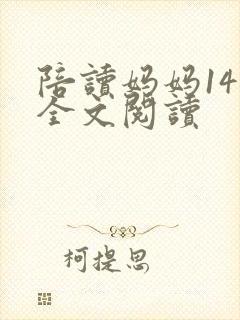 陪讀妈妈14
全文閱讀
柯提思